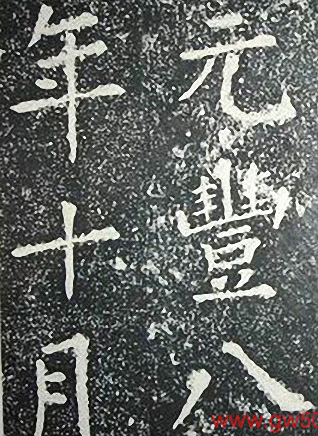 元豐八
年十月
www.gw50